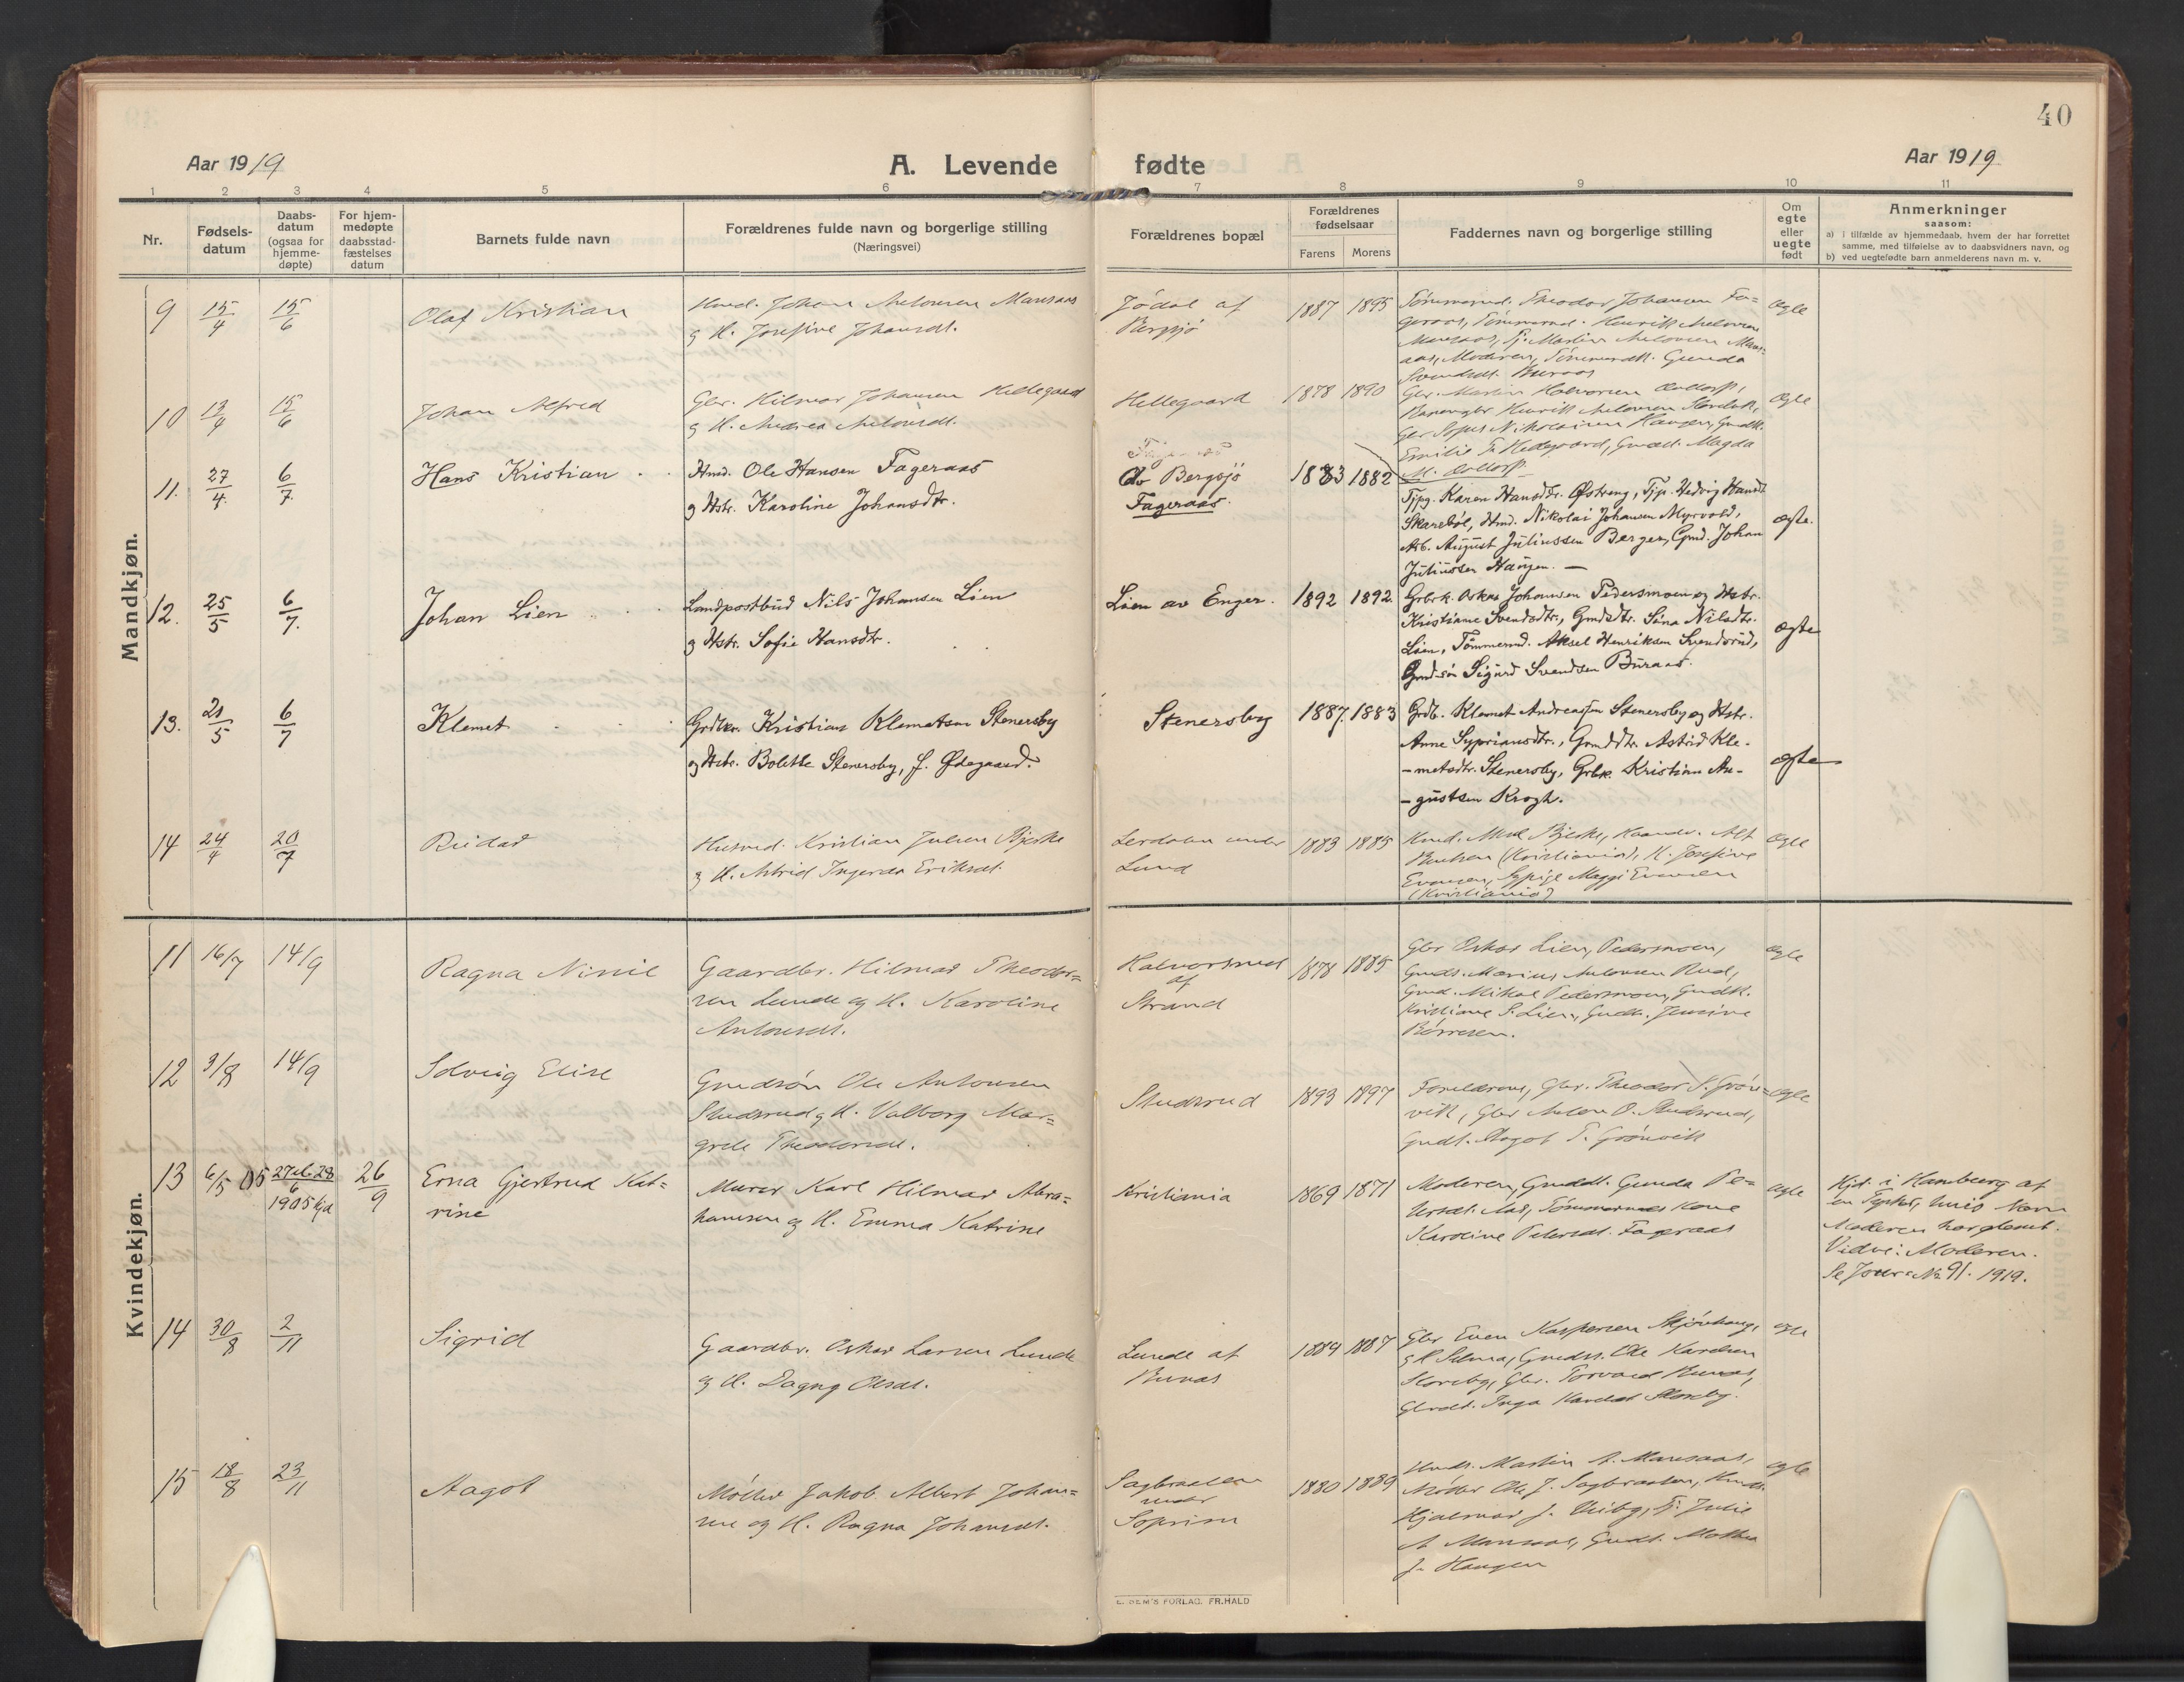 40
Aar 1919
A. Levende fødte
Aar 1919
1 2 3 4 5 6 7 8 9 10 11
Nr.
Fødsels-
datum
Daabs-
datum
(ogsaa for
hjemme-
døpte)
For hjem-
medøpte
daabsstad-
fæstelses
datum
Barnets fulde navn
Forældrenes fulde navn og borgerlige stilling
(Næringsvei)
Forældrenes bopæl
Forældrenes
fødselsaar
Farens Morens
Faddernes navn og borgerlige stilling
Om
egte
eller
uegte
født
Anmerkninger
saasom:
a) i tilfælde av hjemmedaab, hvem der har forrettet
samme, med tilføielse av to daabsvidners navn, og
b) ved uegtefødte barn anmelderens navn m. v.
Mandkjøn.
9 15/4 15/6
Olaf Kristian
Johan Antonsen Mansaas
g H. Josefine Johansdt.
Jødal af
Bergsjø
1887 1895
Tømmermd. Theodor Johansen Fa=
geraas, Tømmermd. Henrik Antonsen
Mansaas, Tj. Martin Antonsen Mans=
aas, Moderen, Gunda
Svendsdt. Buraas
Ægte
10 13/4 15/6
Johan Alfred
Gbr. Hilmar Johansen Hellegaard
g H. Andrea Antonsdt.
Hellegaard
1878 1890
Gbr. Martin Halvorsen
Henrik Antonsen
Nikolaisen Haugen,
Emilie Magda
Ægte
11. 27/4. 6/7.
Hans Kristian
Hmd. Ole Hansen Fageraas
g Hstr. Karoline Johansdtr.
av Bergsjö
Fageraas.
1883 1882
Tjpg. Karen Hansdtr. Østreng, Tjp. Hedvig Hansdt
Skarebøl, Hmd. Nikolai Johansen Myrvold,
Arb. August Juliussen Berger, Gmd. Johan
Juliussen Haugen. —
ægte.
12. 25/5 6/7.
Johan Lien
Landpostbud Nils Johansen Lien
g Hstr. Sofie Hansdtr.
Lien av Enger.
1892 1892
Grbrk. Oskar Johansen Pedersmoen og Hstr.
Kristiane Svendsdtr., Gmdsdtr. Sina Nilsdtr.
Lien, Tömmermd. Aksel Henriksen Svendsrud,
Gmdsön Sigurd Svendsen Buraas.
ægte
13. 21/5 6/7
Klemet
Grdbr. Kristian Klemetsen Stenersby
og Hstr. Bolette Stenersby, f. Ødegaard.
Stenersby
1887. 1883
Grdb. Klemet Andreassen Stenersby og Hstr.
Anne Sypriansdtr., Gmddtr. Astrid Kle-
-metsdtr. Stenersby, Grbr. Kristian Au-
-gustsen Krogh.
ægte
14 24/4 20/7
Reidar
Husmd. Kristian Julsen Bjerke
g H. Astrid Ingerda Eriksdt.
Lerdalen under
Lund
1883 1885
Bjerke, Alf
(Kristiania), H. Josefine
Evensen, Maggi Evensen
(Kristiania)
Ægte
Kvindekjøn.
11 16/7 14/9
Ragna Ninie
Gaardbr. Hilmar Theodor=
sen Lunde og H. Karoline
Antonsdt.
Halvorsrud
af
Strand
1878 1885
Gbr Oskar Lien, Pedersmoen,
Gmds. Marius Antonsen Rud,
Gmd. Mikal Pedersmoen,
Kristiane S. Lien, Jensine
Børresen.
Ægte
12 3/8 14/9
Solveig Elise
Gmdsøn Ole Antonsen
Studsrud g H. Valborg Mar=
grete Theodorsdt.
Studsrud
1893 1897
Forældrene, Gbr. Theodor Grøn=
vik, Gbr Anton O. Studsrud,
Gmdt. Aagot T. Grønvik
Ægte
13 6/5 05 27 el. 28/6 1905 hjd 26/9
Erna Gjertrud Kat=
rine
Murer Karl Hilmar Abra=
hamsen og H. Emma Katrine
Kristiania
1869 1871
Moderen, Gmddt. Gunda Pe=
tersdt. Aas, Tømmermds Kone
Karoline Petersdt. Fageraas
Ægte
Hjd. i Hamburg af
en Tysker, hvis Navn
Moderen har glemt.
Vidne: Moderen.
Se Jour. No 91. 1919.
14 30/8 2/11
Sigrid
Gaardbr. Oskar Larsen Lunde
g H. Dagny Olsdt.
Lunde af
Bunæs
1884 1887
Gbr Even Kaspersen
g H Selma, Gmdss. Ole Karelsen
Gbr. Torvald Bunæs,
Gbrdt. Inga
Ægte
15 18/8 23/11
Aagot
Møller Jakob Albert Johan=
sen og H. Ragna Johansdt.
Sagbraaten
under
Soprim
1880 1889
Martin A. Mansaas,
Møller Ole J. Sagbraaten,
Hjalmar J. Tj. Julie
A Mansaas, Gmdt. Mathea
J. Haugen
Ægte
E. SEM'S FORLAG. FR.HALD